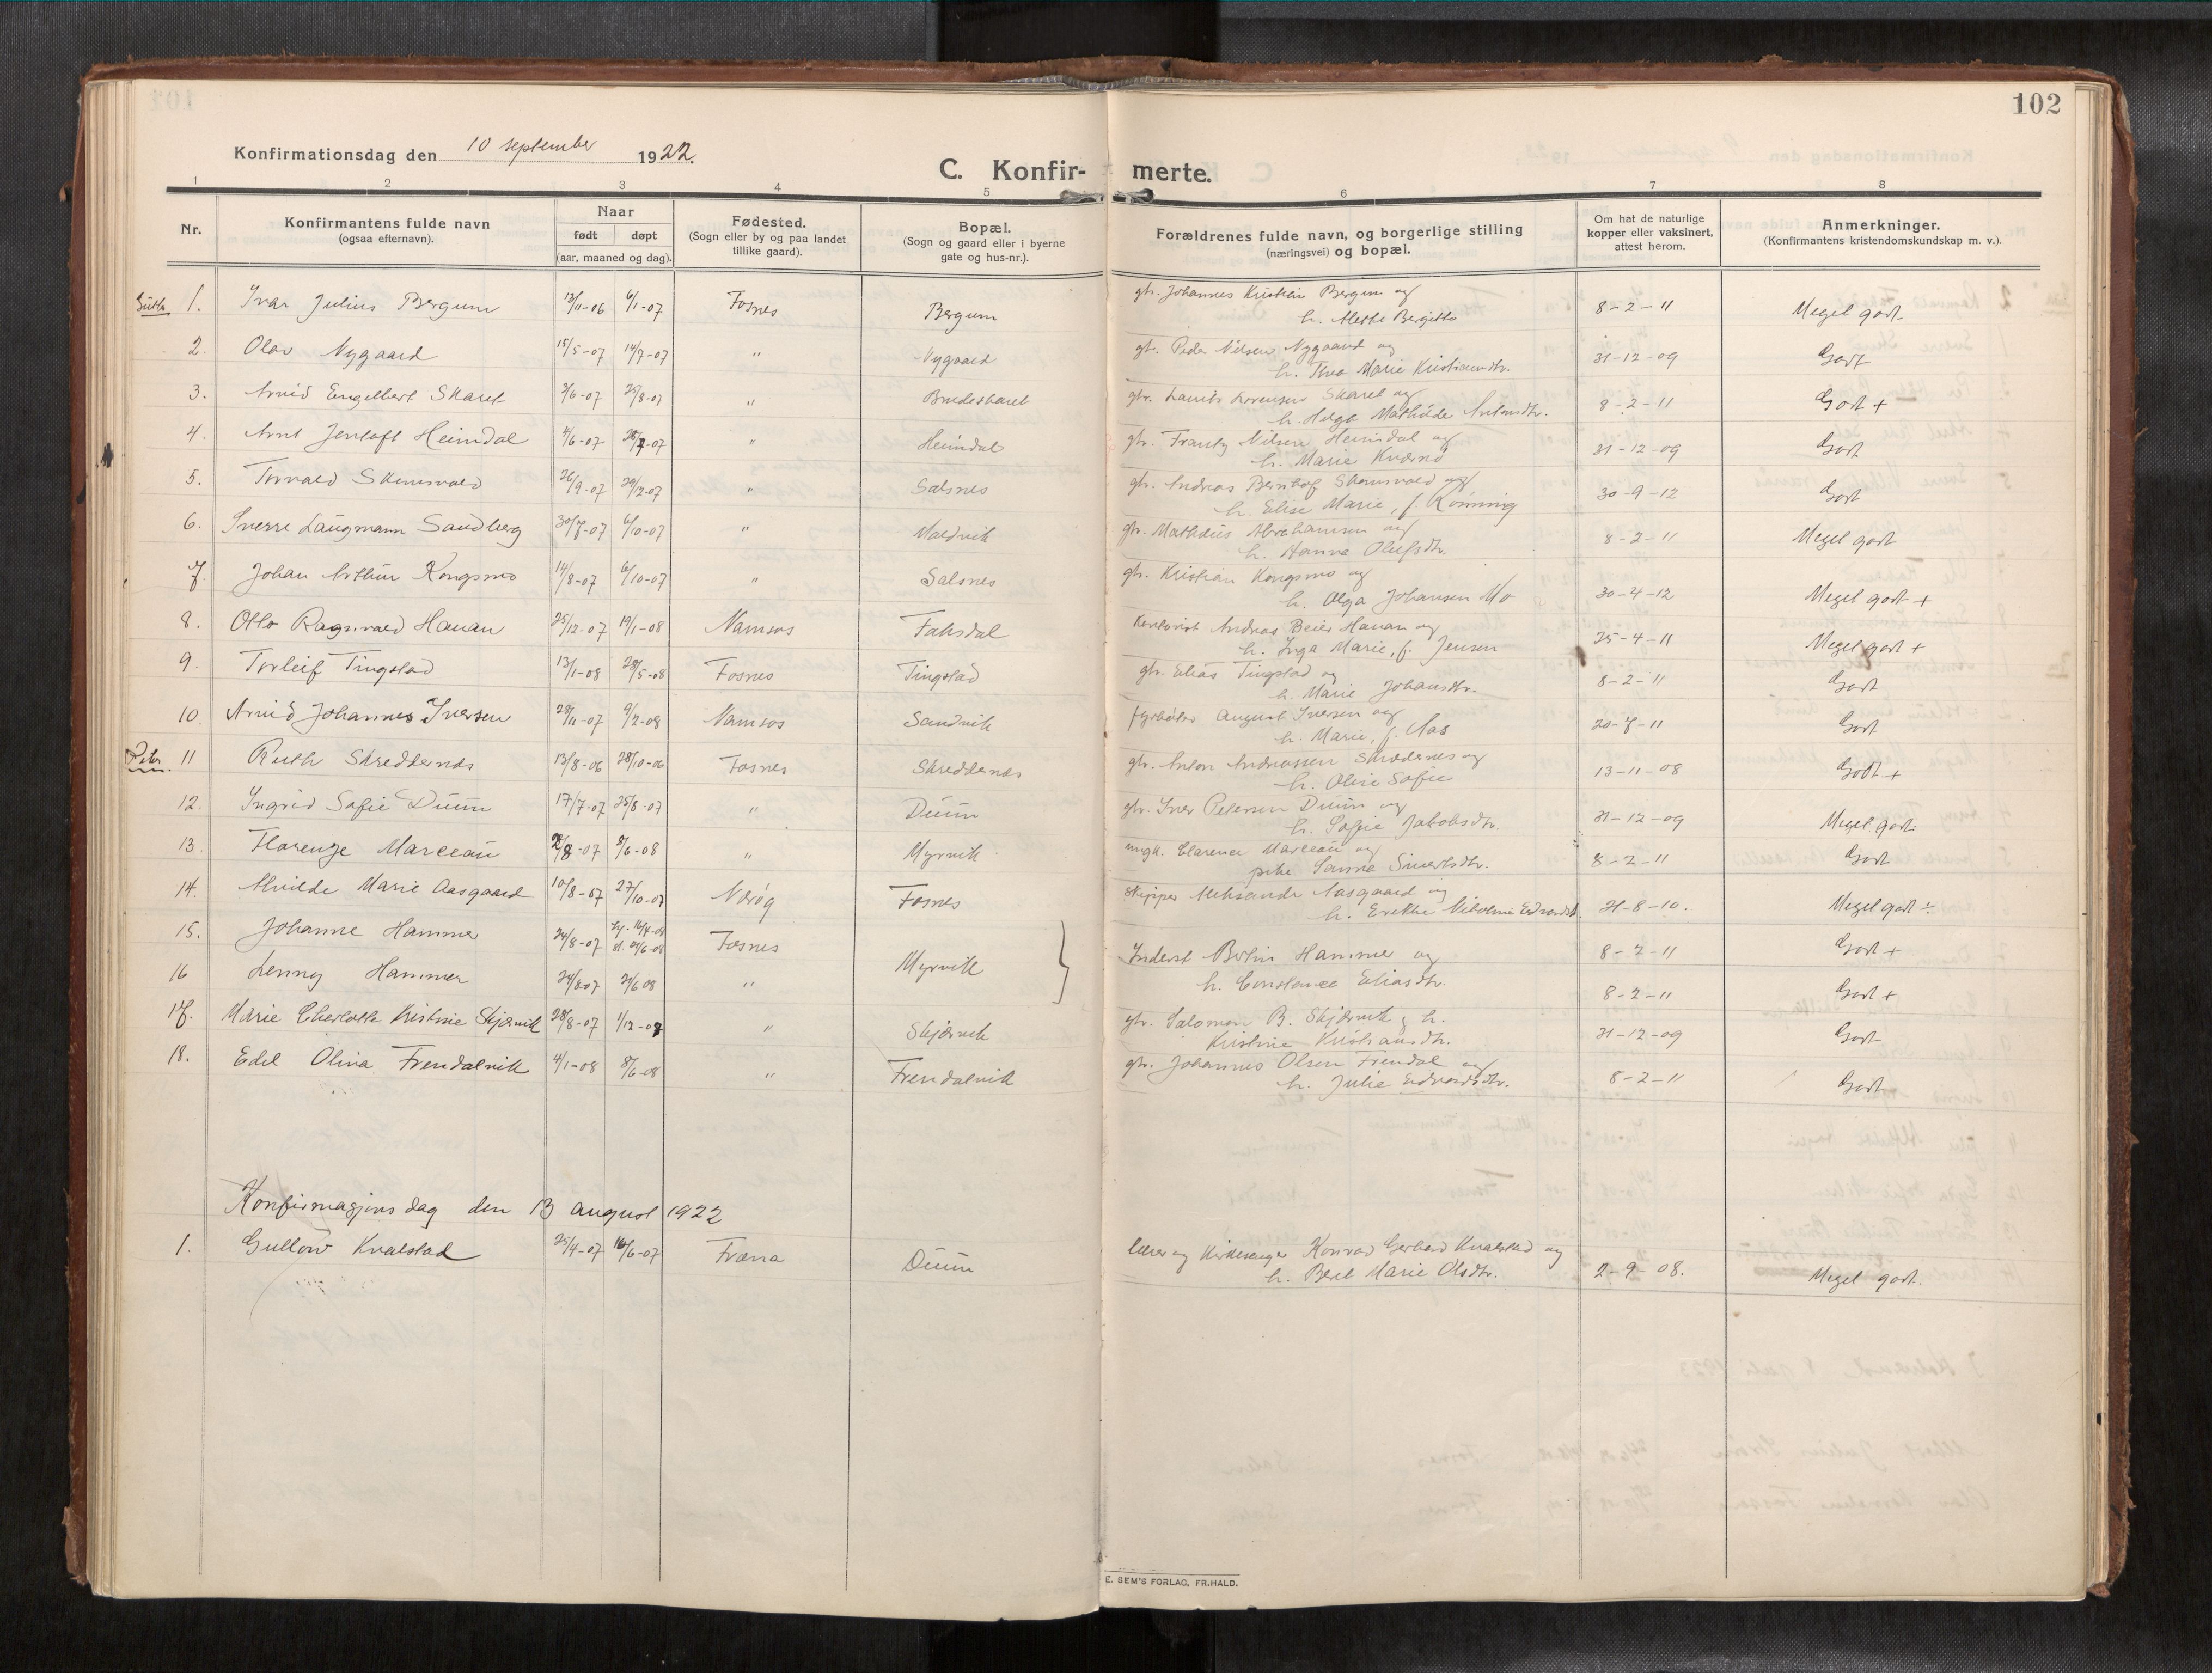 102
Konfirmationsdag den 10 september 1922.
C. Konfir- merte.
1 2 3 4 5 6 7 8
Nr.
Konfirmantens fulde navn
(ogsaa efternavn).
Naar
født døpt
(aar, maaned og dag).
Fødested.
(Sogn eller by og paa landet
tillike gaard).
Bopæl.
(Sogn og gaard eller i byerne
gate og hus-nr.).
Forældrenes fulde navn, og borgerlige stilling
(næringsvei) og bopæl.
Om hat de naturlige
kopper eller vaksinert,
attest herom.
Anmerkninger.
(Konfirmantens kristendomskundskap m. v.).
Gutter 1. Ivar Julius Bergum 13/11-06 6/1-07 Fosnes Bergum gbr. Johannes Kristian Bergum og 8-2-11 Meget godt
h. Alette Bergitte
2. Olav Nygaard 15/5-07 14/7-07 " Nygaard gbr. Peder Nilsen Nygaard og 31-12-09 Godt
h. Thea Marie Kristiansdtr.
3. Arvid Engelbert Skaret 3/6-07 25/8-07 " gbr. Laurits Lorensen Skaret og 8-2-11 Godt +
h. Helga Mathilde Antonsdtr.
4. Arnt Jentoft Heimdal 4/6-07 28/7-07 " Heimdal gbr. Frantz Nilsen Heimdal og 31-12-09 Godt
h. Marie Kværnø
5. Torvald Skomsvold 26/9-07 29/12-07 " Salsnes gbr. Andreas Bernhof Skomsvold og 30-9-12 Godt
h. Elise Marie, f. Rønning
6. Sverre Laugmann Sandberg 30/7-07 6/10-07 " gbr. Mathæus Abrahamsen og 8-2-11 Meget godt
h. Hanna Olufsdtr.
7. Johan Arthur Kongsmo 14/8-07 6/10-07 " Salsnes gbr. Kristian Kongsmo og 30-4-12 Meget godt +
h. Olga Johansen Mo
8. Otto Ragnvald Hanan 25/12-07 19/1-08 Namsos Faksdal Andreas Beier Hanan og 25-4-11 Meget godt +
h. Inga Marie, f. Jensen
9. Torleif Tingstad 13/1-08 28/5-08 Fosnes Tingstad gbr. Elias Tingstad og 8-2-11 Godt
h. Marie Johansdtr.
10. Arvid Johannes Iversen 28/11-07 9/2-08 Namsos Sandvik fyrbøter August Iversen og 20-7-11 Godt
h. Marie, f. Aas
Piker. 11 Ruth Skreddernes 13/8-06 28/10-06 Fosnes Skreddernes gbr. Anton Andreassen Skreddernes og 13-11-08 Godt +
h. Oline Sofie
12. Ingrid Sofie Duun 17/7-07 25/8-07 " Duun gbr. Iver Petersen Duun og 31-12-09 Meget godt.
h. Sofie Jakobsdtr.
13. Florenze Marceau 2/8-07 8/6-08 " Myrvik ungk. Clarence Marceau og 8-2-11 Godt
pike Sanna Sivertsdtr.
14. Alvilde Marie Aasgaard 10/8-07 27/10-07 Nærøy Fosnes skipper Aleksander Aasgaard og 31-8-10. Meget godt ÷
h. Erikke Nikoline Edvardsdtr.
15. Johanne Hammer 24/8-07 hj. 16/4-08 Fosnes Myrvik } Inderst Botin Hammer og 8-2-11 Godt +
st. 21/6-08
16 Lenny Hammer 24/8-07 21/6 08 " h. Constance Eliasdtr. 8-2-11 Godt +
17. Marie Charlotte Kristine Skjærvik 28/8-07 1/12-07 " Skjærvik gbr. Salomon B. Skjærvik og h. 31-12-09 Godt
Kristine Kristiansdtr.
18. Edel Olina Frendalvik 4/1-08 8/6-08 " Frendalvik gbr. Johannes Olsen Frendal og 8-2-11 Godt
h. Julie Edvardsdtr.
Konfirmasjonsdag den 13 august 1922
1. Gullow Kvalstad 25/4-07 16/6-07 Fræna Duun lærer og kirkesanger Konrad Gerhard Kvalstad og 2-9-08. Meget godt.
h. Beret Marie Olsdtr.
E. SEM'S FORLAG, FR.HALD.